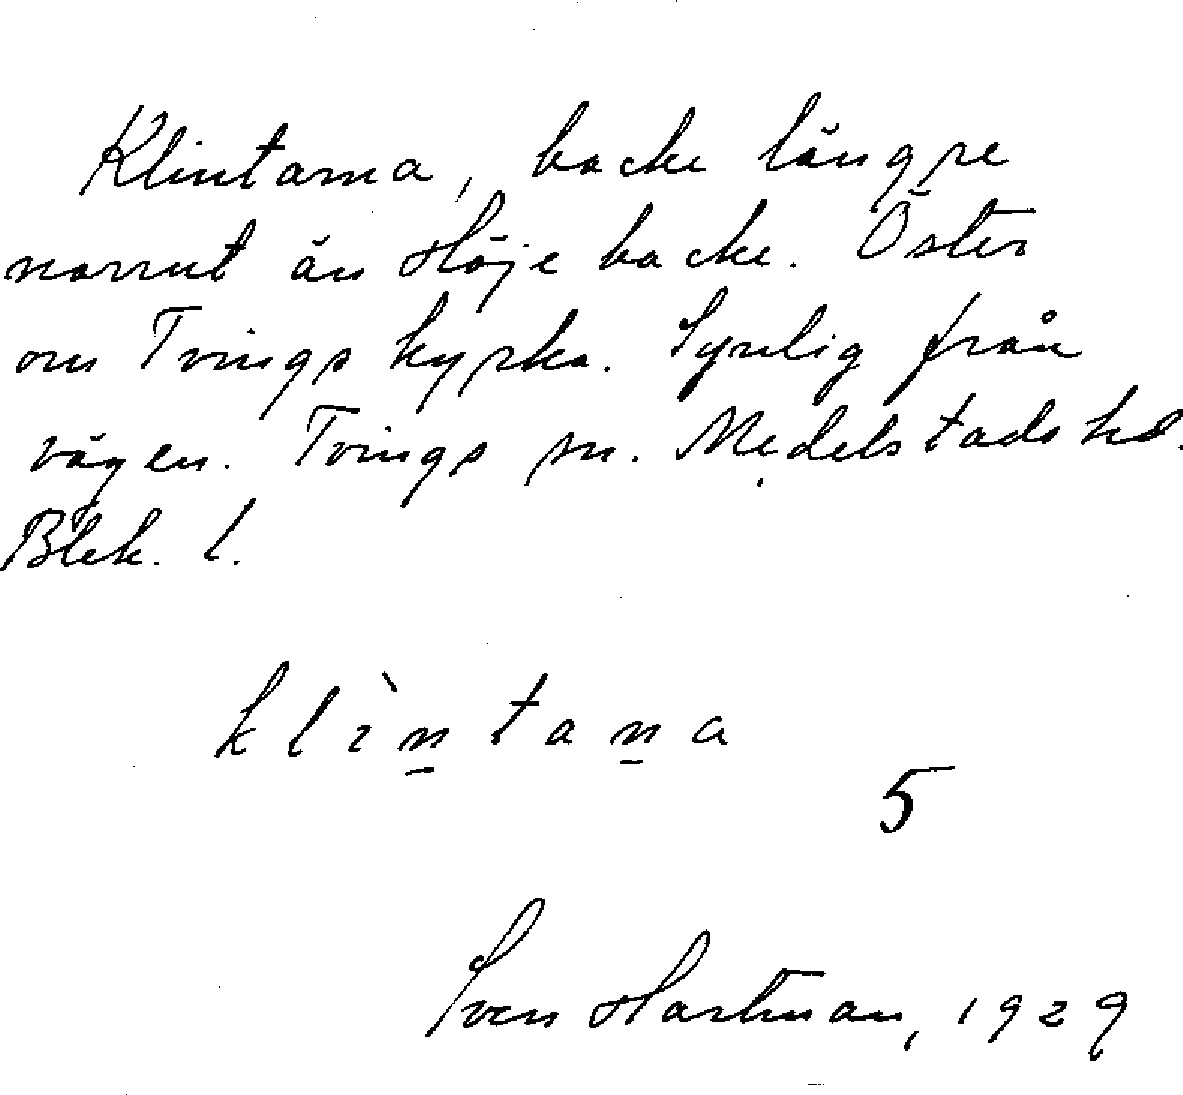 Klintarna, backe längre
norrut än Höje backe. Öster
om Tvings kyrka. Synlig från
vägen. Tvings sn. Medelstads hd.
Blek. l.
klìn̠tan̠a
5
Sven Hartman, 1929